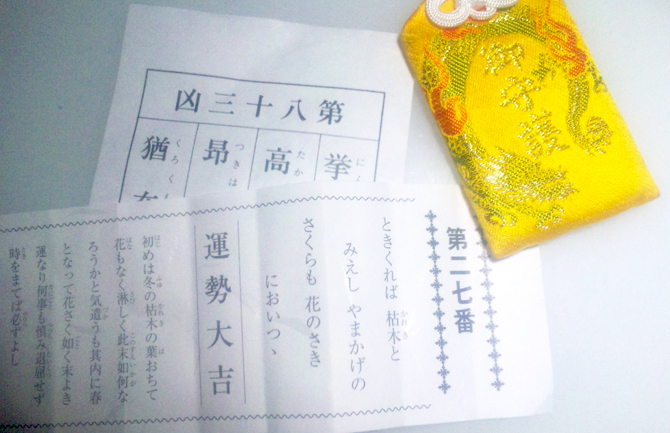 御守護
第八十三凶
挙
高
昂
猶
第二七番
ときくれば 枯木と
みえし やまかげの
さくらも 花のさき
においつゝ
運勢大吉
初めは冬の枯木の葉おちて
花もなく淋しく此末如何な
ろうかと気遣うも其内に春
となって花さく如く末よき
運なり何事も慎み退屈せず
時をまてば必ずよし